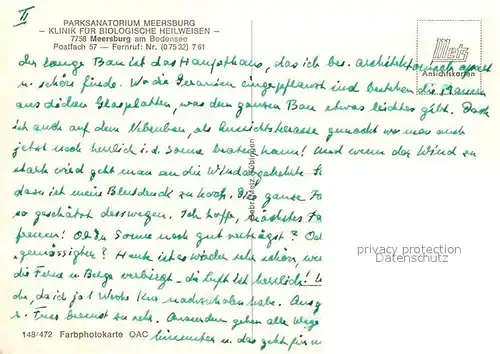 II
PARKSANATORIUM MEERSBURG
– KLINIK FÜR BIOLOGISCHE HEILWEISEN –
7758 Meersburg am Bodensee
Postfach 57 – Fernruf: Nr. (0 75 32) 7 61
Metz
Ansichtskarten
der lange Bau ist das Haupthaus, das ich bes. architektonisch apart
u. schön finde. Wo die Geranien eingepflanzt sind bestehen die Mauern
aus dicken Glasplatten, was dem ganzen Bau etwas leichtes gibt.
ich auch auf dem Nebenbau, als Aussichtsterasse gemacht wo man auch
jetzt noch herrlich i.d. Sonne braten kann! Und wenn der Wind zu
stark wird geht man an die Windabgekehrte
dazu ist mein Blutdruck zu hoch. Die ganze
so geschützt deswegen. Ich hoffe, nächstes
freuen! Ob Du Sonne noch gut verträgst?
gemässigter? Heute ist es wieder sehr schön,
die Ferne u. Berge verbirgt - die Luft ist herrlich!
da, daich ja 1 Woche Kur nachholen habe.
zu sehr. Ausserdem gehen alle Wege
hinunter u. das geht für
Gebr. Metz, Tübingen
privacy protection
Datenschutz
148/472 Farbphotokarte QAC